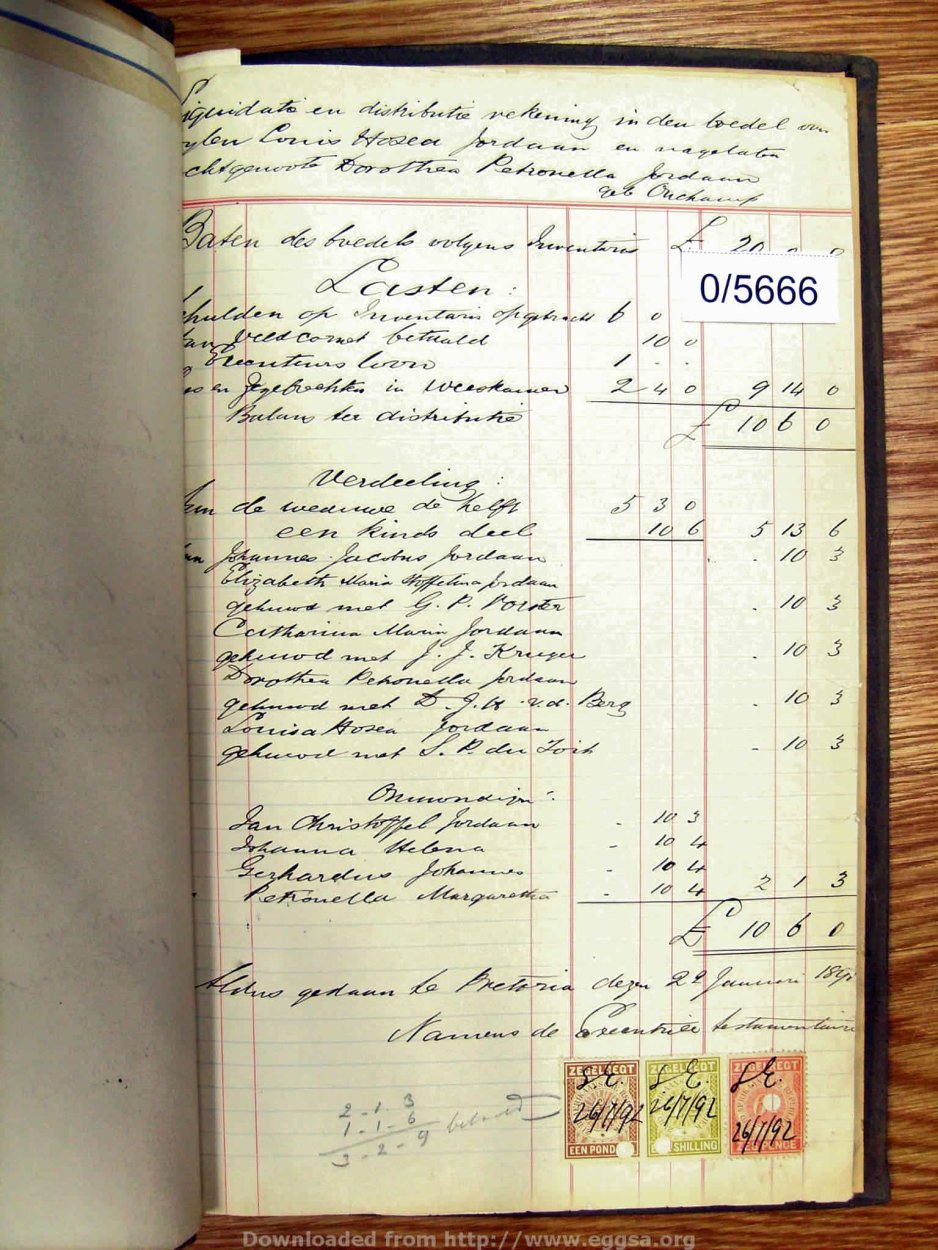 iquidatie en distributie rekening in den boedel van
ylen Louis Hosea Jordaan en nagelaten
chtgenoote Dorothea Petronella Jordaan
geb Ouchamp
Baten des boedels volgens Inventaris £ 20 0 0
0/5666
Lasten:
chulden op Inventaris opgebracht 6 0
an Veldcornet betaald 10 0
Executeurs loon 1 - -
es en in Weeskamer 2 4 0 9 14 0
Balans ter distributie £ 10 6 0
Verdeeling:
Aan de weduwe de helft 5 3 0
een kinds deel 10 6 5 13 6
an Johannes Jacobus Jordaan - 10 3
Elizabeth Maria Stoffelina Jordaan
gehuwd met G. P. Vorster - 10 3
Catharina Maria Jordaan
gehuwd met J. J. Kruger - 10 3
Dorothea Petronella Jordaan
gehuwd met D. J. H. v.d. Berg - 10 3
Louisa Hosea Jordaan
gehuwd met S. P. du Toit - 10 3
Onmondigen:
Jan Christoffel Jordaan - 10 3
Johanna Helena - 10 4
Gerhardus Johannes - 10 4
Petronella Margaretha - 10 4 2 1 3
£ 10 6 0
Aldus gedaan te Pretoria dezen 29 Januari
Namens de Executrice testamentaire
ZEGELREGT ZEGELREGT ZEGELREGT
S.E. S.E. S.E.
26/7/92 26/7/92 26/7/92
EEN POND SHILLING
2 - 1 - 3
1 - 1 - 6 betaald
3 - 2 - 9
Downloaded from http://www.eggsa.org